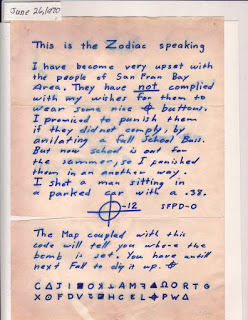 June 26, 1970
This is the Zodiac speaking
I have become very upset with
the people of San Fran Bay
Area. They have not complied
with my wishes for them to
wear some nice ⌖ buttons.
I promised to punish them
if they did not comply, by
anilating a full School Buss.
But now school is out for
the summer, so I punished
them in an another way.
I shot a man sitting in
a parked car with a .38.
⌖-12 SFPD-0
The Map coupled with this
code will tell you where the
bomb is set. You have untill
next Fall to dig it up. ⌖
C Δ J I ■ O ꓘ ⅄ A M ꟻ ▲ Ω O R T G
X ⊙ F D V ꓱ ▣ H C E L ⌖ P W Δ